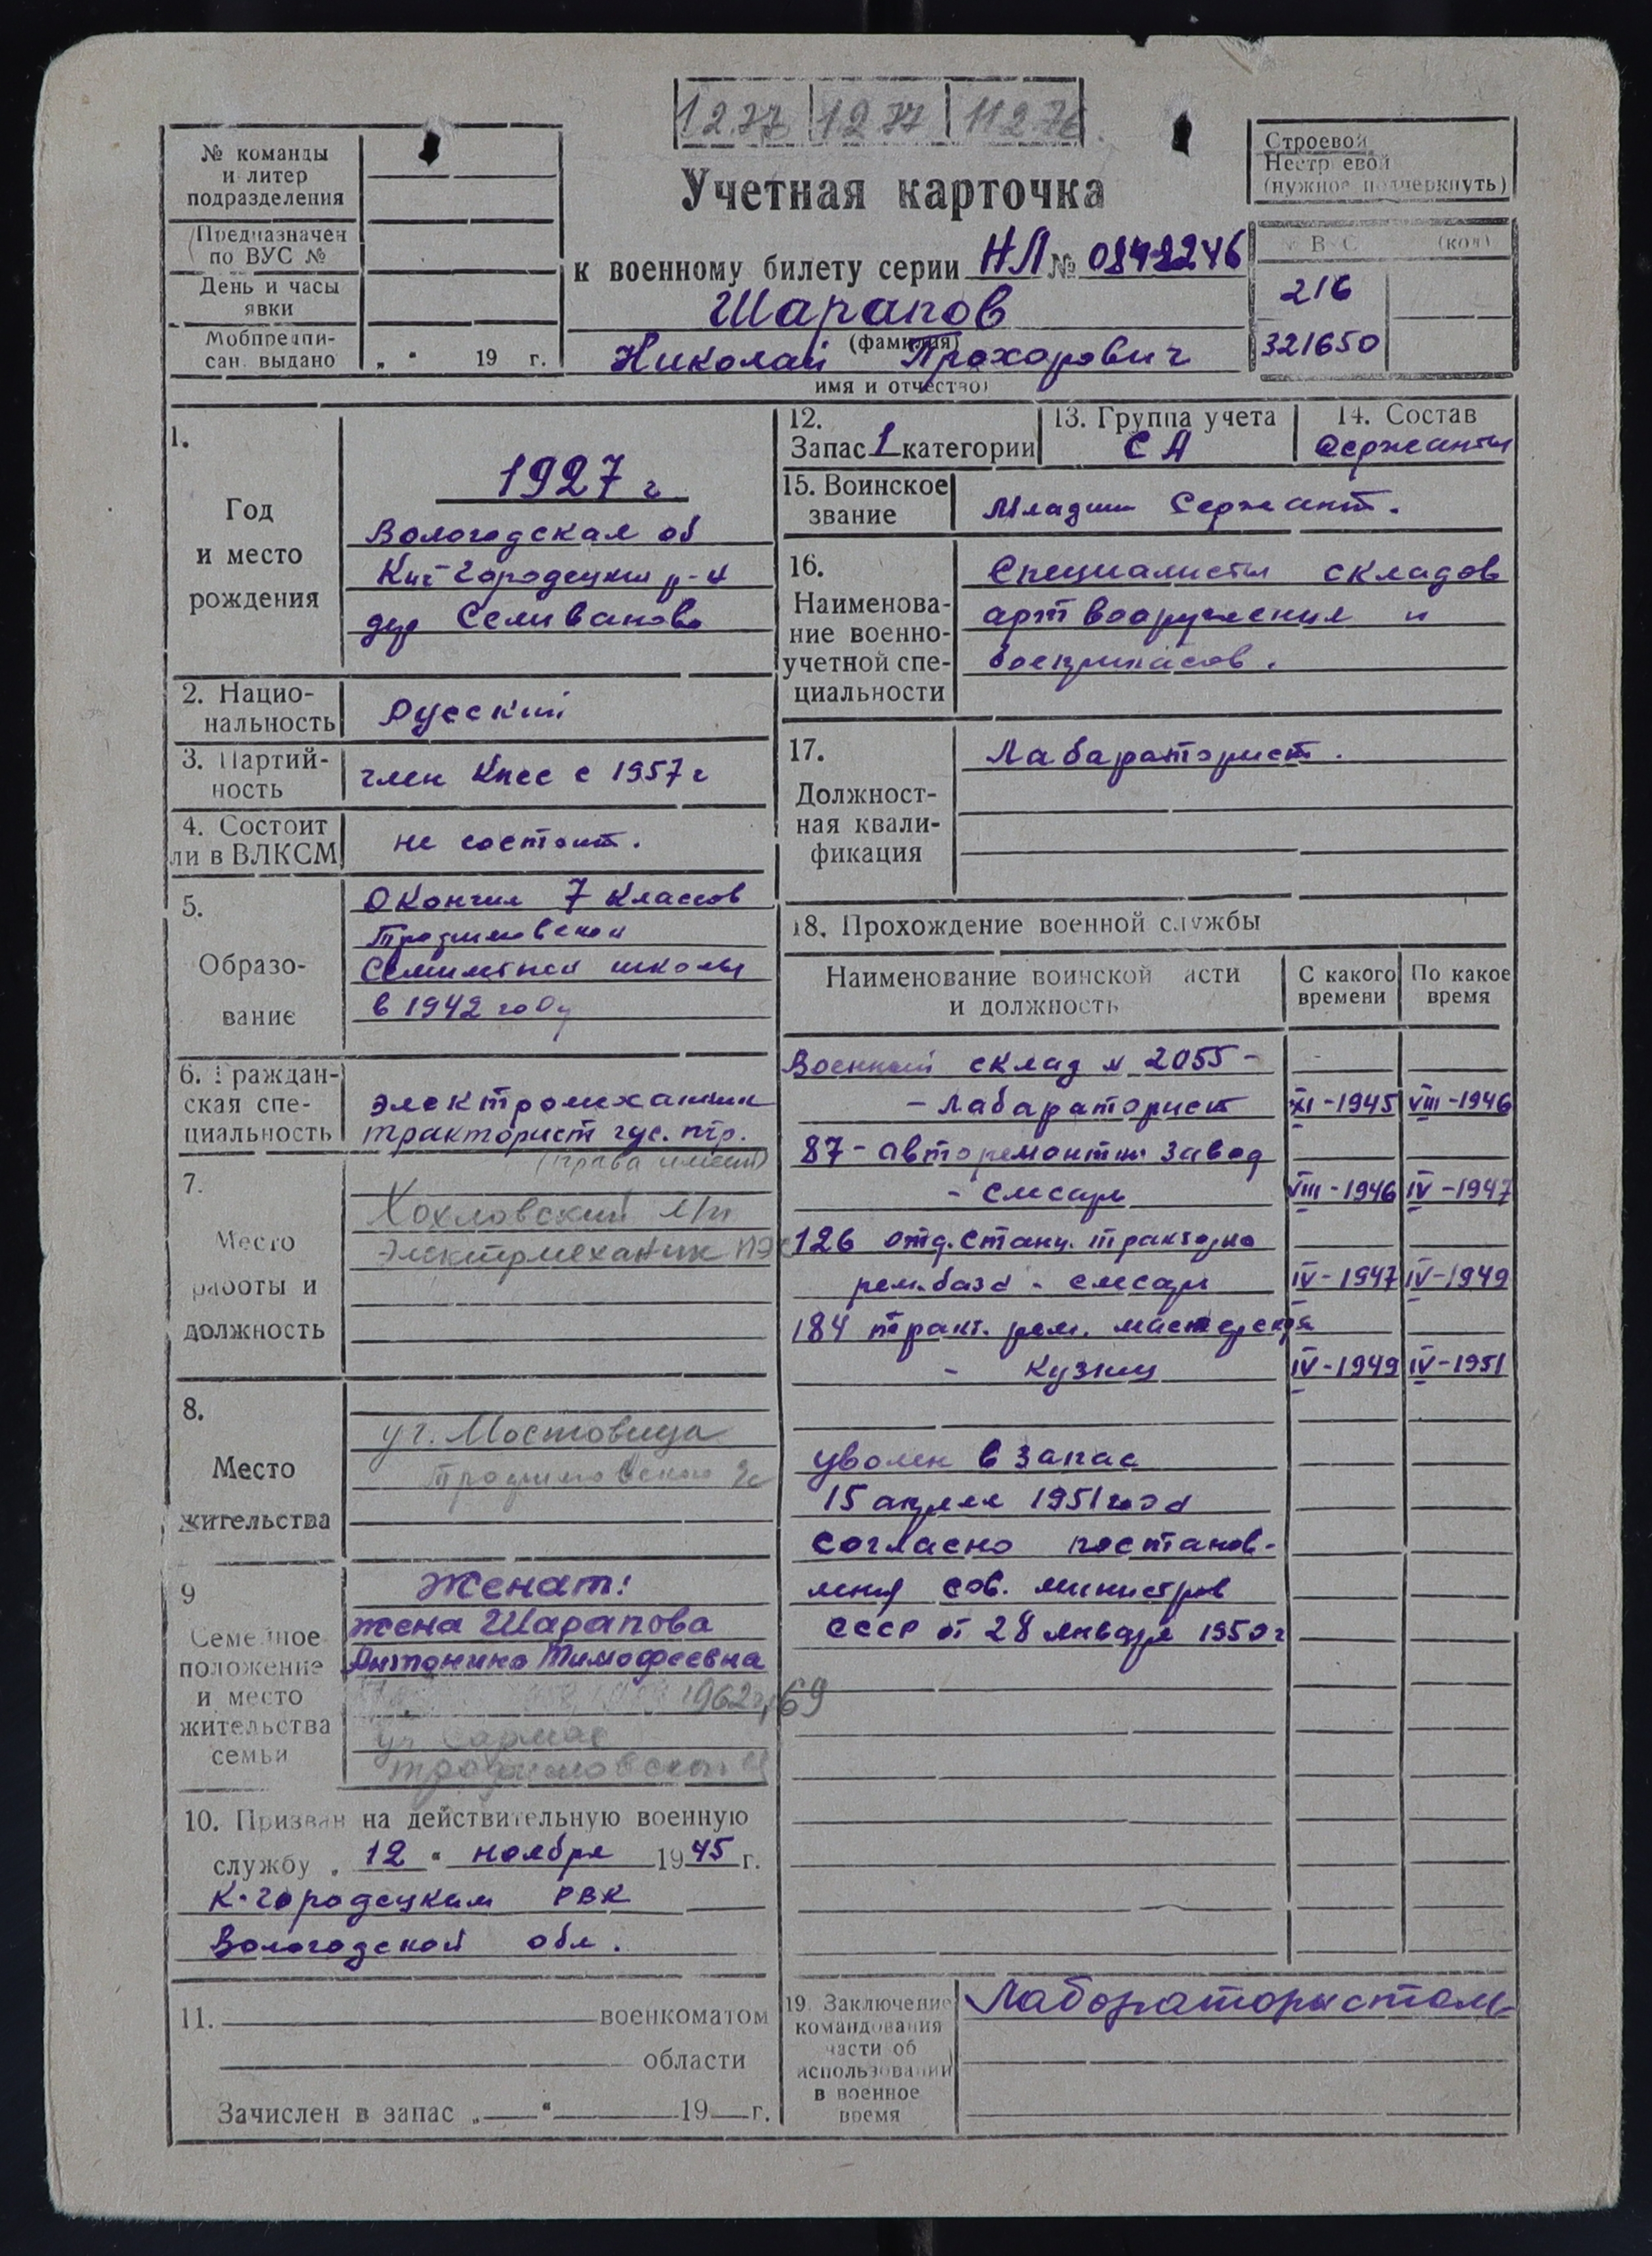 1277 1277 11276
№ команды
и литер
подразделения
Предназначен
по ВУС №
День и часы
явки
Мобпредпи-
сан. выдано „ “ 19 г.
Учетная карточка
к военному билету серии НЛ №
Шарапов
(фамилия)
Николай Прохорович
имя и отчество)
Строевой
Нестроевой
(нужное подчеркнуть)
ВУС (код)
216
321650
1.
Год
и место
рождения
1927 г
Вологодская об
Кич-Городецкий р-н
дер Селиваново
2. Нацио-
нальность
Русский
3. Партий-
ность
член Кпсс с 1957 г
4. Состоит
ли в ВЛКСМ
не состоит.
5.
Образо-
вание
Окончил 7 классов
Трофимовской
Семилетней школы
в 1942 году
6. Граждан-
ская спе-
циальность
электромеханик
тракторист гус. птр.
(права имеет)
7.
Место
работы и
должность
Хохловский л/п
Электромеханик ПЭС
8.
Место
жительства
уч. Мостовица
Трофимовского
9
Семейное
положение
и место
жительства
семьи
Женат:
жена Шарапова
Антонина Тимофеевна
1962г, 69
уч.
Трофимовский
10. Призван на действительную военную
службу „ 12 “ ноября 1945 г.
К-городецким РВК
Вологодской обл.
11. военкоматом
области
Зачислен в запас „ “ 19 г.
12.
Запас 1 категории
13. Группа учета
СА
14. Состав
Сержанты
15. Воинское
звание
Младши Сержант.
16.
Наименова-
ние военно-
учетной спе-
циальности
Специалисты складов
арт вооружения и
боеприпасов.
17.
Должност-
ная квали-
фикация
Лабараторист.
18. Прохождение военной службы
Наименование воинской асти
и должность
С какого
времени
По какое
время
Военный склад № 2055 -
- Лабараторист XI - 1945 VIII - 1946
87 - авторемонтны завод
- слесарь VIII - 1946 IV - 1947
126 отд. станц. тракторно
рем. база - слесарь IV - 1947 IV - 1949
184 тракт. рем. мастерская
- Кузнец IV - 1949 IV - 1951
Уволен в запас
15 апреля 1951 года
согласно постанов-
ления сов. министров
СССР от 28 января 1950 г
19. Заключение
командования
части об
использовании
в военное
время
Лабораторыстом